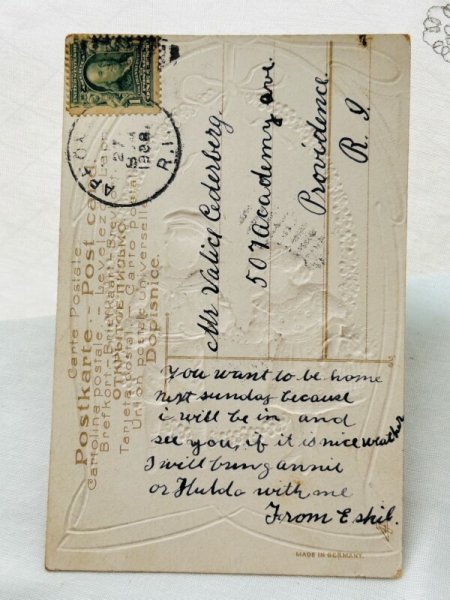 Carte Postale
Postkarte - Post card
Cartolina postale - Levelező-Lap
Brefkort - Briefkaart - Brevkort
ОТКРЫТОЕ ПИСЬМО
Tarjeta postal - Carte Postale
Union postale universelle
Dopisnice.
27
R.I.
Mr Valice Cederberg.
507 academy ave.
Providence.
R. I.
You want to be home
next sunday because
i will be in and
see you, if it is nice weather
I will bring annie
or Hulda with me
From Eskil.
MADE IN GERMANY.